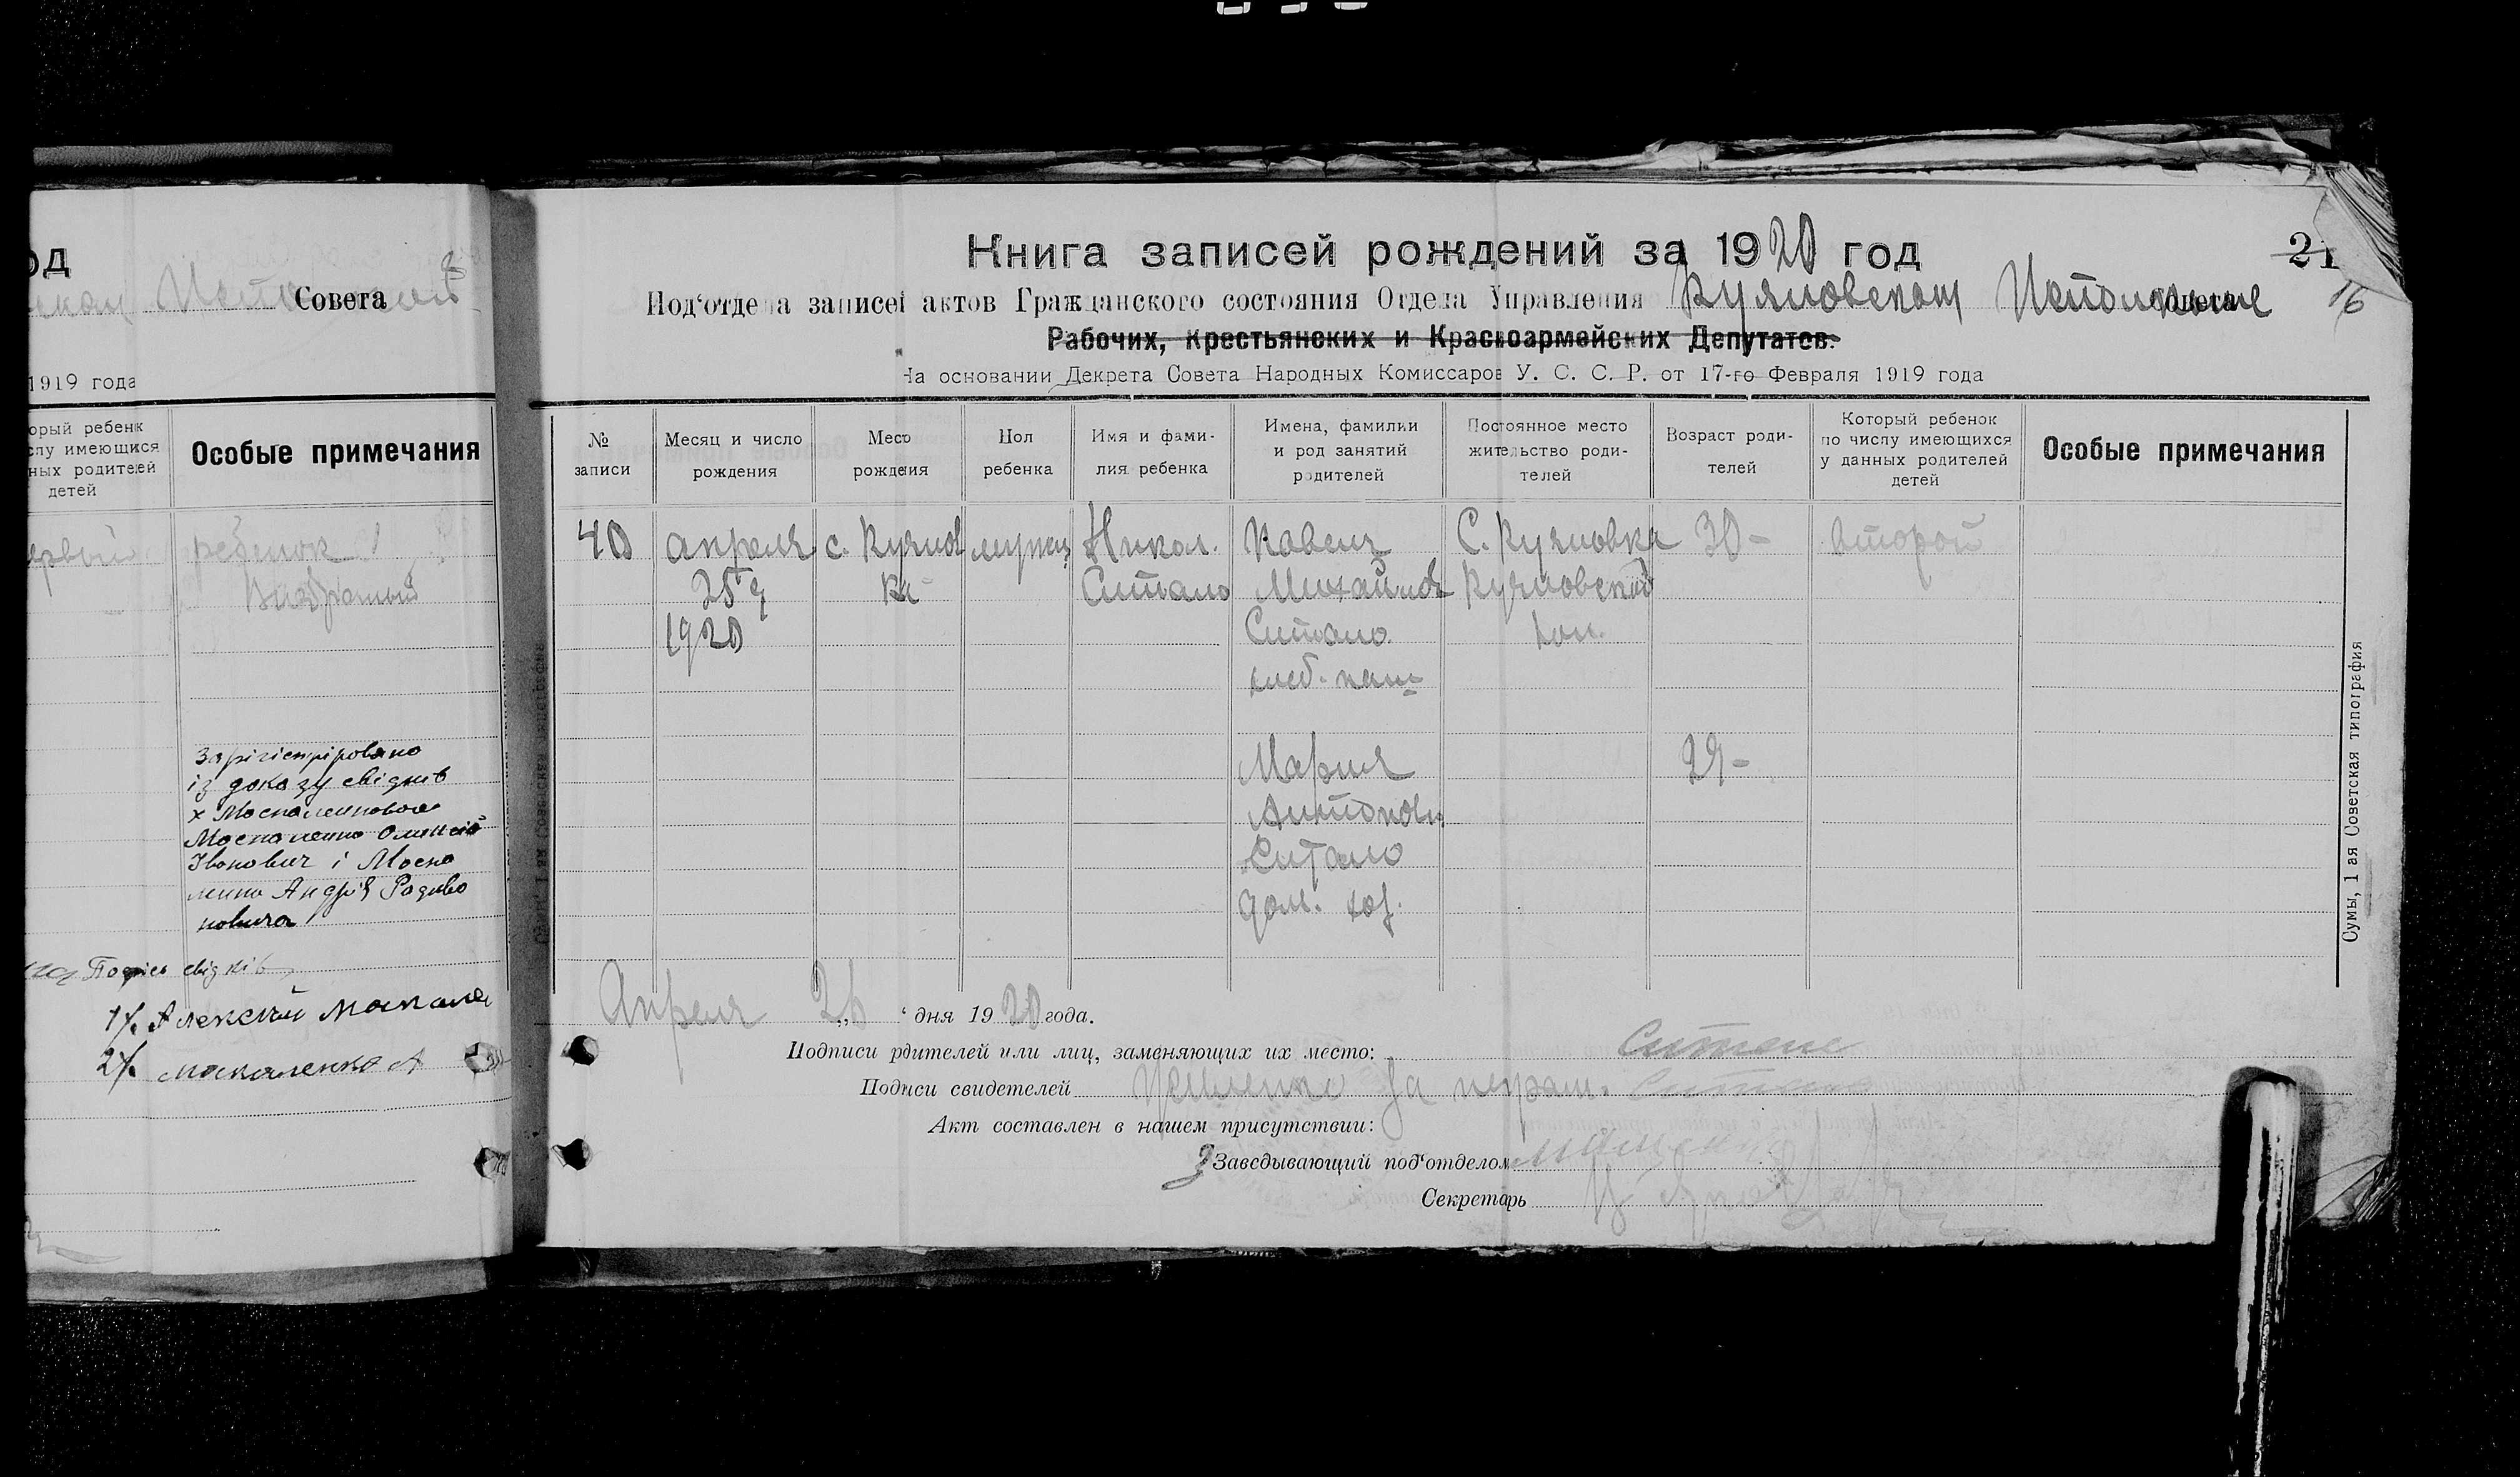 од
Совета
1919 года
орый ребенк
слу имеющиися
ных родителей
детей
Особые примечания
ервый ребенок
Зарігістріровано
із доказу свідків
Іванович і Моска
ленко Андрій Родиво
новича
Подпісь свідків
1/. Алексий
2/. Москаленко А
Книга записей рождений за 1920 год
21
Под'отдела записей актов Гражданского состояния Отдела Управления Куяновском Исполкоме Совета
16
Рабочих, Крестьянских и Красноармейских Депутатов.
На основании Декрета Совета Народных Комиссаров У. С. С. Р. от 17-го Февраля 1919 года
№ записи
Месяц и число рождения
Место рождения
Пол ребенка
Имя и фами-
лия ребенка
Имена, фамилии
и род занятий
родителей
Постоянное место
жительство роди-
телей
Возраст роди-
телей
Который ребенок
по числу имеющихся
у данных родителей
детей
Особые примечания
40
апреля
25
1920
с. Куянов
ка
мужс
Никол.
Ситало
Павел
Михайлов
Ситало
хлеб. паш
С. Куяновка
Куяновской
вол.
30-
второй
Мария
Антонов.
Ситало
дом. хоз.
29-
Апреля 26 " дня 1920 года.
Подписи родителей или лиц, заменяющих их место:
Подписи свидетелей За неграм.
Акт составлен в нашем присутствии:
Заведывающий под'отделом
Секретарь
Сумы, 1 ая Советская типография